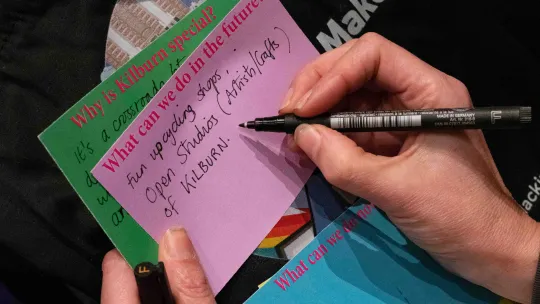 Why is Kilburn special?
It's a crossroads
What can we do in the future?
fun upcycling shops.
Open Studios (Artists/Crafts)
of KILBURN.
What can we do
Make
MADE IN GERMANY
F